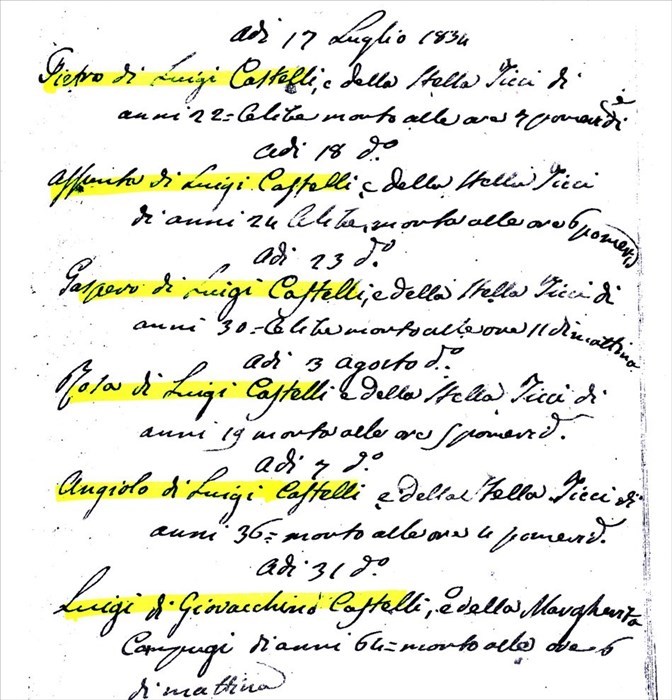 Adi 17 Luglio 1834
Pietro di Luigi Castelli, e della Stella Ticci di
anni 22= Celibe morto alle ore 7 pomerid.
Adi 18 do.
Assunta di Luigi Castelli e della Stella Ticci
di anni 24 Celibe, morta alle ore 6 pomerid.
Adi 23 do.
Gaspero di Luigi Castelli, e della Stella Ticci di
anni 30= Celibe morto alle ore 11 di mattina
Adi 3 agosto do.
Rosa di Luigi Castelli e della Stella Ticci di
anni 19 morta alle ore 5 pomerid.
Adi 7 do.
Angiolo di Luigi Castelli e della Stella Ticci di
anni 36= morto alle ore 4 pomerid.
Adi 31 do.
Luigi di Giovacchino Castelli, e della Margherita
di anni 64= morto alle ore 6
di mattina